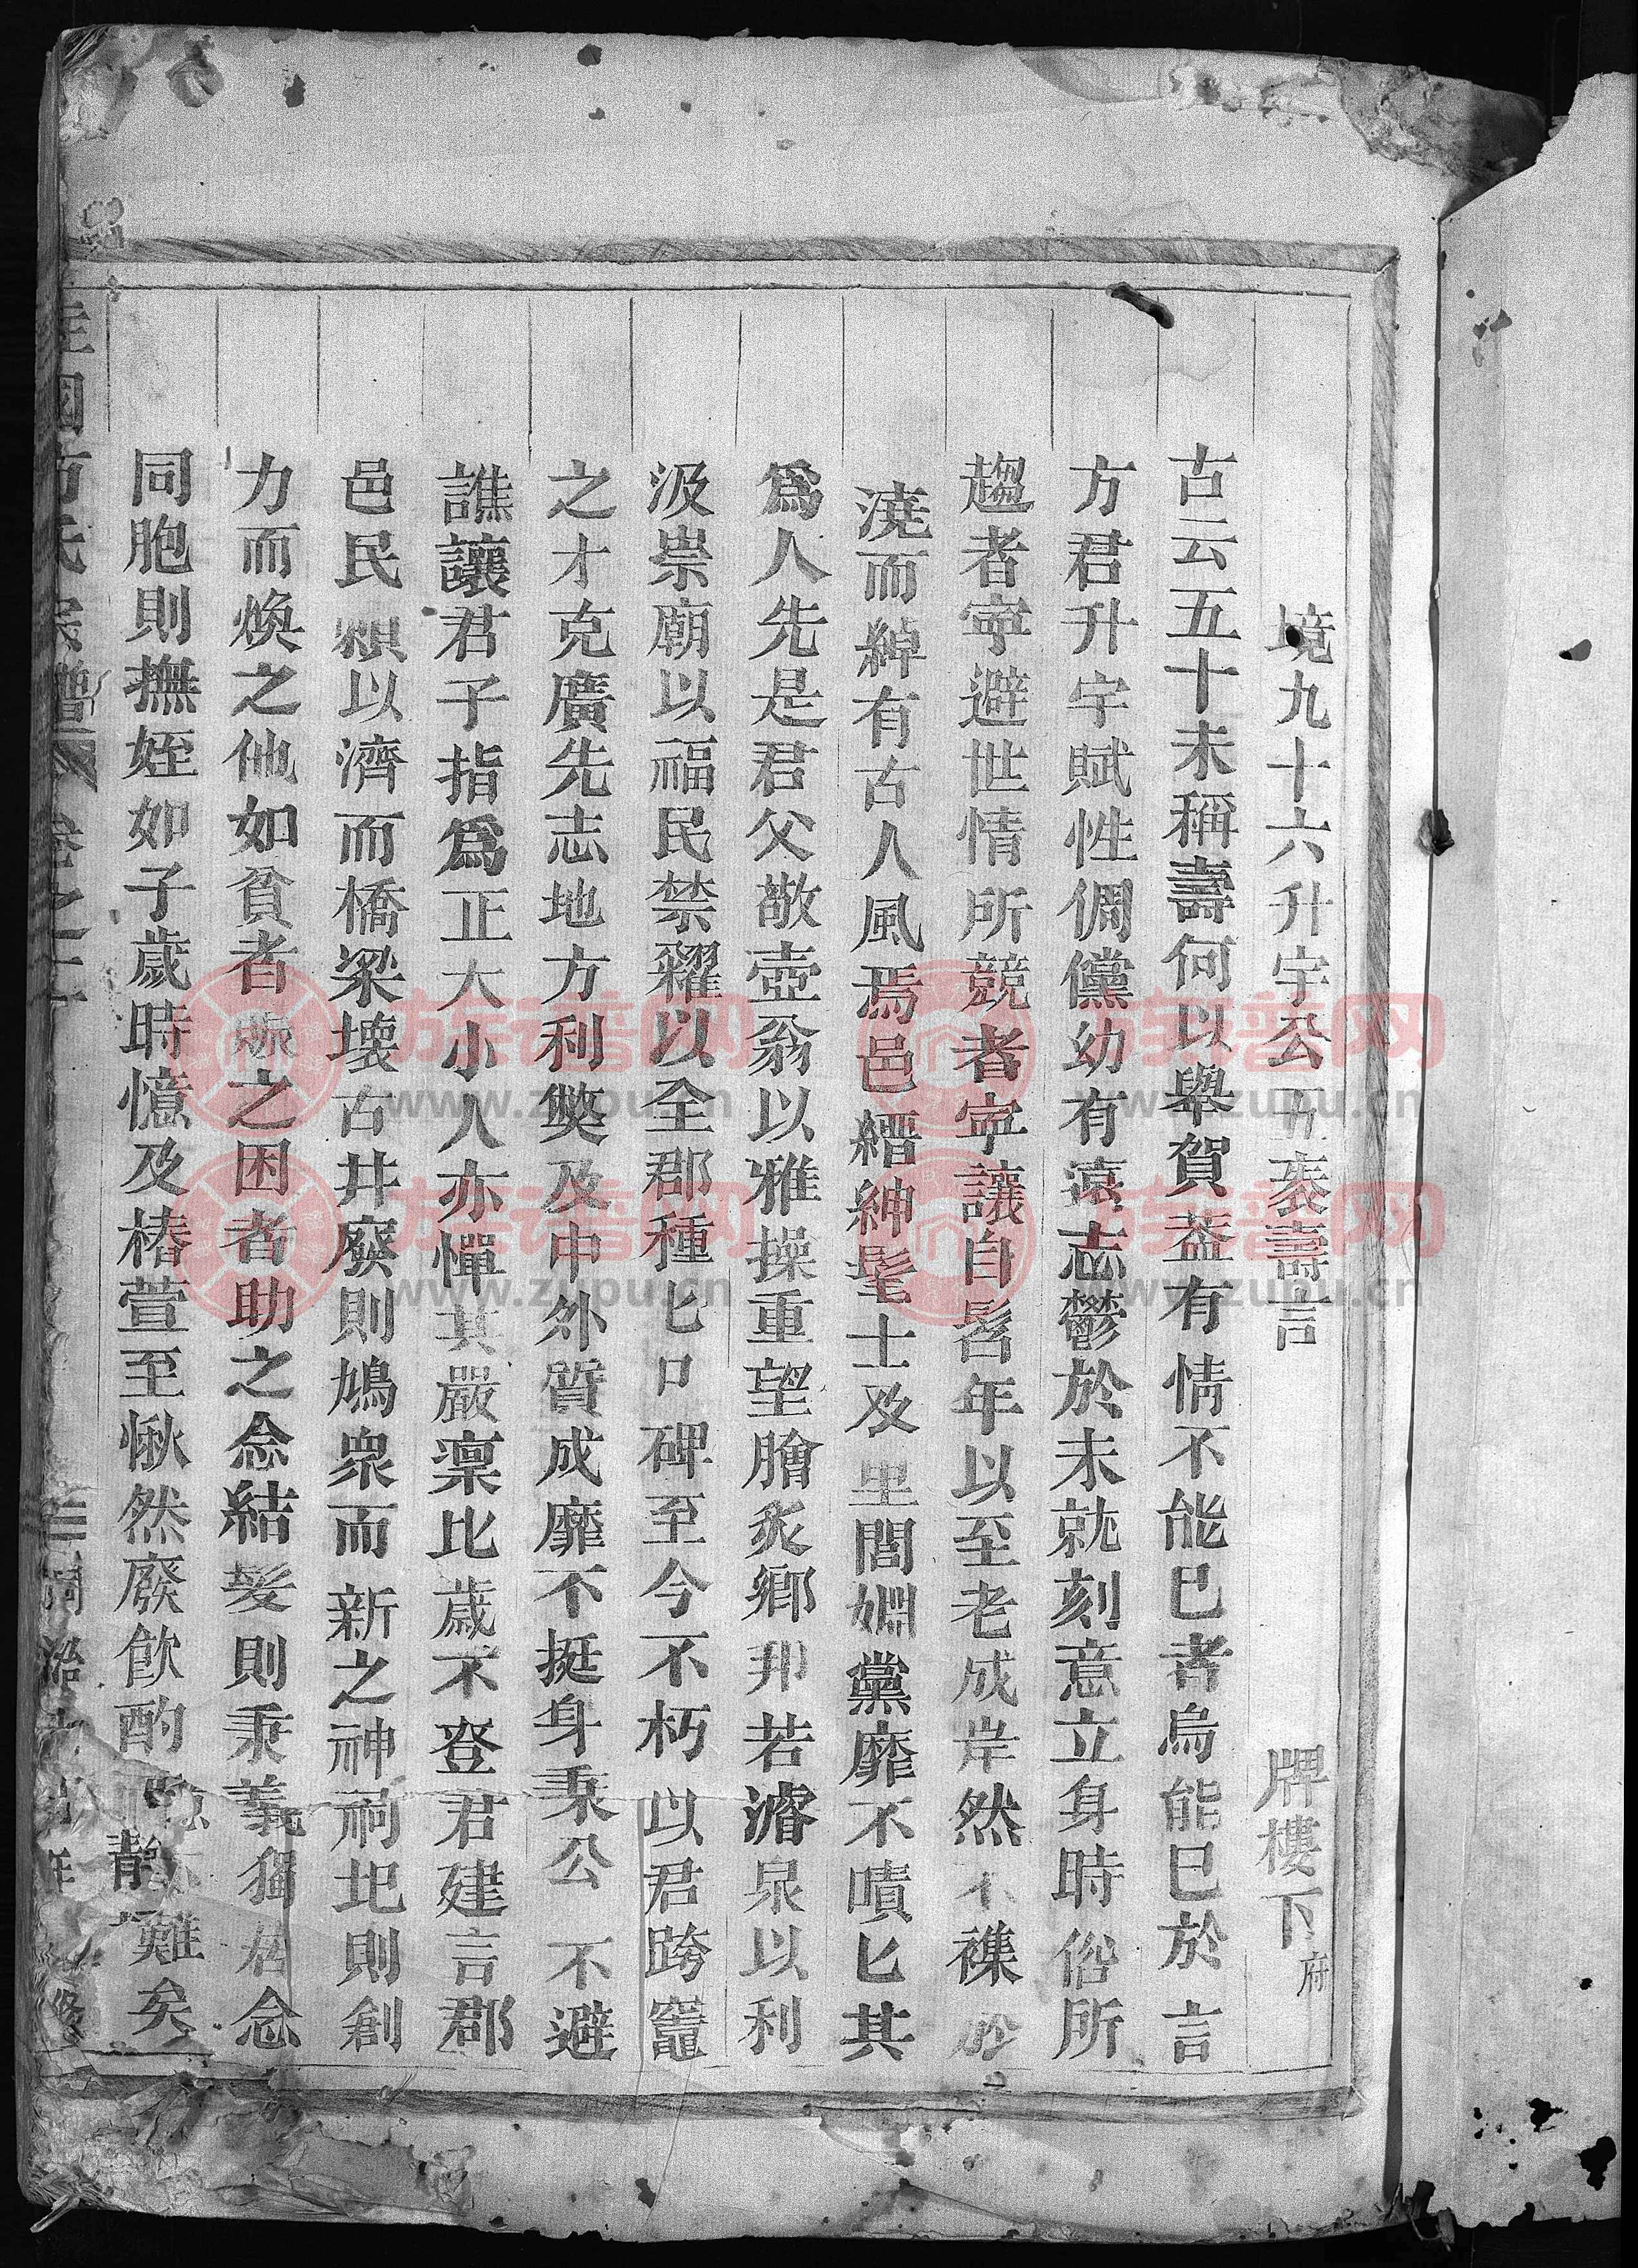 境九十六升宇公五袠壽言
牌樓下府
古云五十未稱壽何以舉賀葢有情不能巳者烏能巳於言
方君升宇賦性倜儻幼有遠志鬱於未就刻意立身時俗所
趨者寧避世情所競者寧讓自髫年以至老成岸然不襍於
澆而綽有古人風焉邑縉紳髦士及里閭姻黨靡不嘖匕其
爲人先是君父敬壺翁以雅操重望膾炙鄉邦若濬泉以利
汲崇廟以福民禁糶以全郡種匕口碑至今不朽以君跨竈
之才克廣先志地方利獘及中外質成靡不挺身秉公不避
譙讓君子指爲正大小人亦憚其嚴凛比歲不登君建言郡
邑民賴以濟而橋梁壞古井廢則鳩眾而新之神祠圯則創
力而煥之他如貧者賑之困者助之念結髮則秉義獨居念
同胞則撫姪如子歲時憶及椿萱至愀然廢飲酌難矣
方氏宗譜 卷之
同治 年 修
族谱网
www.zupu.cn
族谱网
www.zupu.cn
族谱网
www.zupu.cn
族谱网
www.zupu.cn